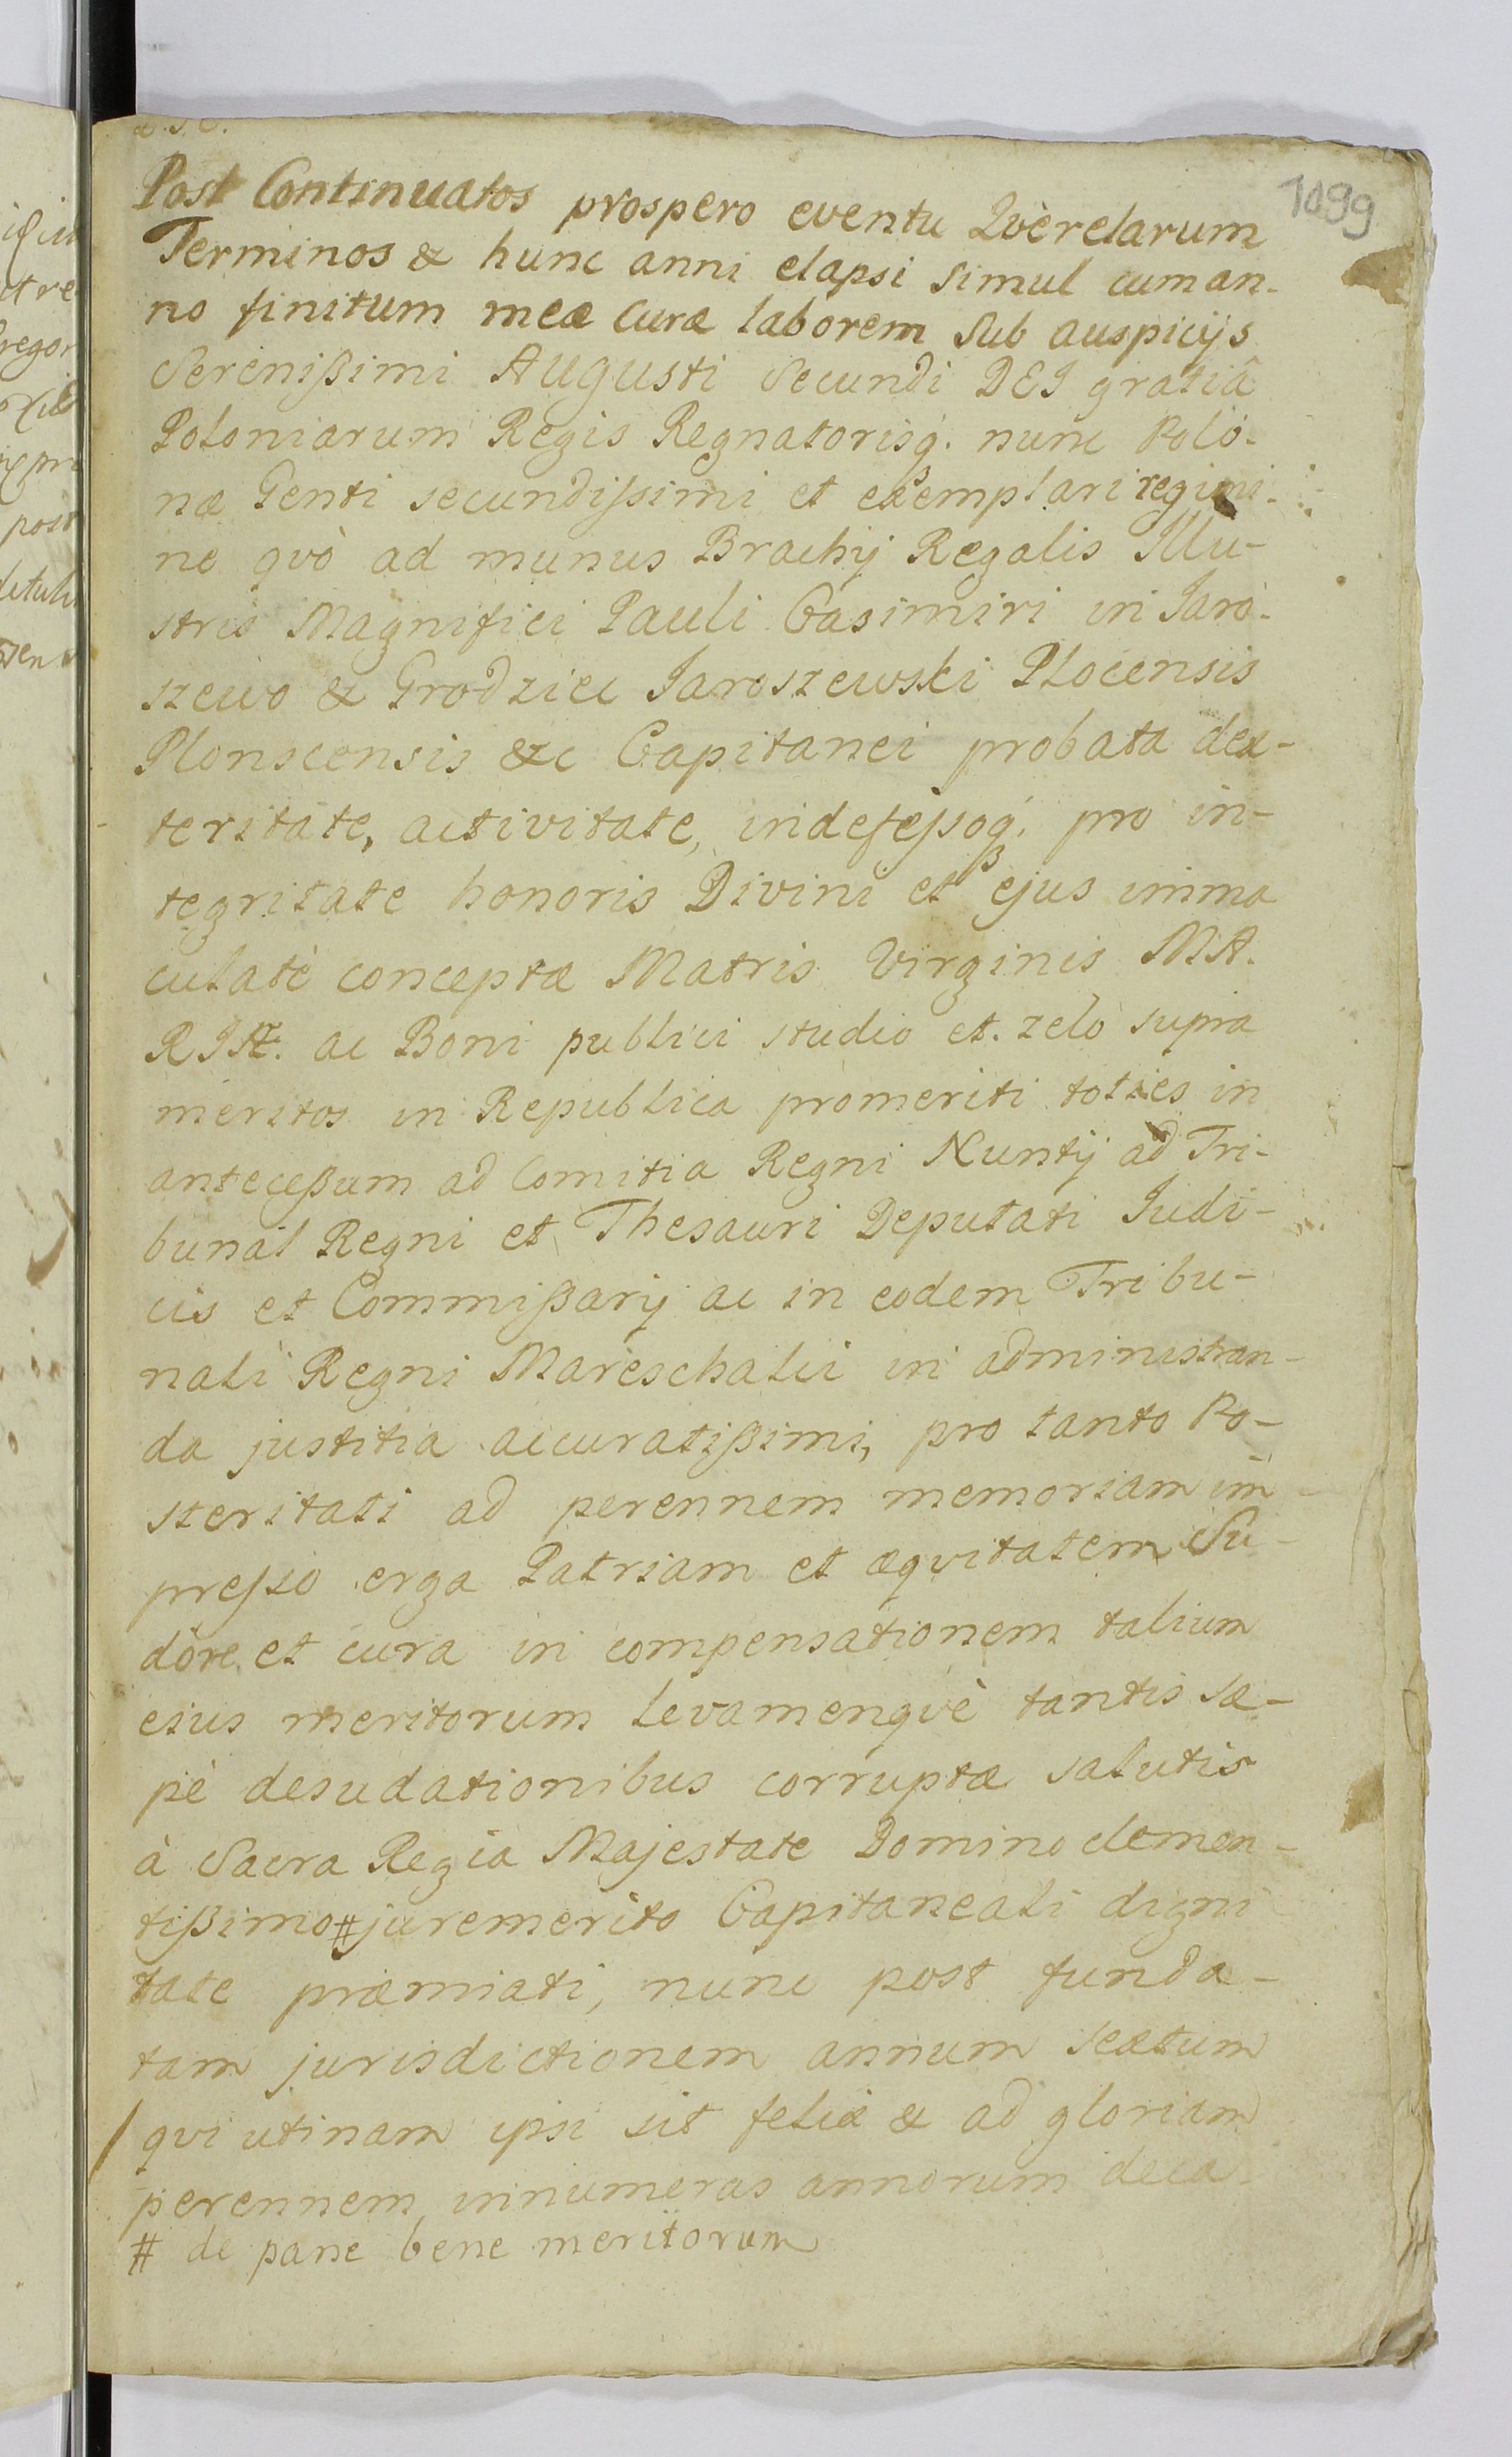 1099
Post Continuatos prospero eventu Qverelarum
Terminos & hunc anni elapsi simul cum an-
no finitum meæ curæ laborem sub auspicijs
Serenißimi Augusti Secundi DEI gratiâ
Poloniarum Regis Regnatorisq. nunc Polo-
næ Genti secundissimi et exemplari regimi-
ne qvò ad munus Brachij Regalis Illu-
stris Magnifici Pauli Casimiri in Jaro-
szewo & Grodziec Jaroszewski Plocensis
Plonscensis &c Capitanei probata dex-
teritate, activitate, indefessoq. pro in-
tegritate honoris Divini et ejus imma
culatè conceptæ Matris Virginis MA.
RIÆ. ac Boni publici studio et zelo supra
meritos in Republica promeriti toties in
anteceßum ad Comitia Regni Nuntij ad Tri-
bunal Regni et Thesauri Deputati Judi-
cis et Commißarij ac in eodem Tribu-
nali Regni Mareschalci in administran-
da justitia accuratißimi, pro tanto Po-
steritati ad perennem memoriam im-
presso erga Patriam et æqvitatem Su-
dore et cura in compensationem talium
eius meritorum levamenqvè tantis sæ-
pè desudationibus corruptæ salutis
à Sacra Regia Majestate Domino clemen-
tißimo # juremerito Capitaneali digni
tate præmiati, nunc post funda-
tam jurisdictionem annum sextum
/ qvi utinam ipsi sit felix & ad gloriam
perennem innumeras annorum deca
# de pane bene meritorum